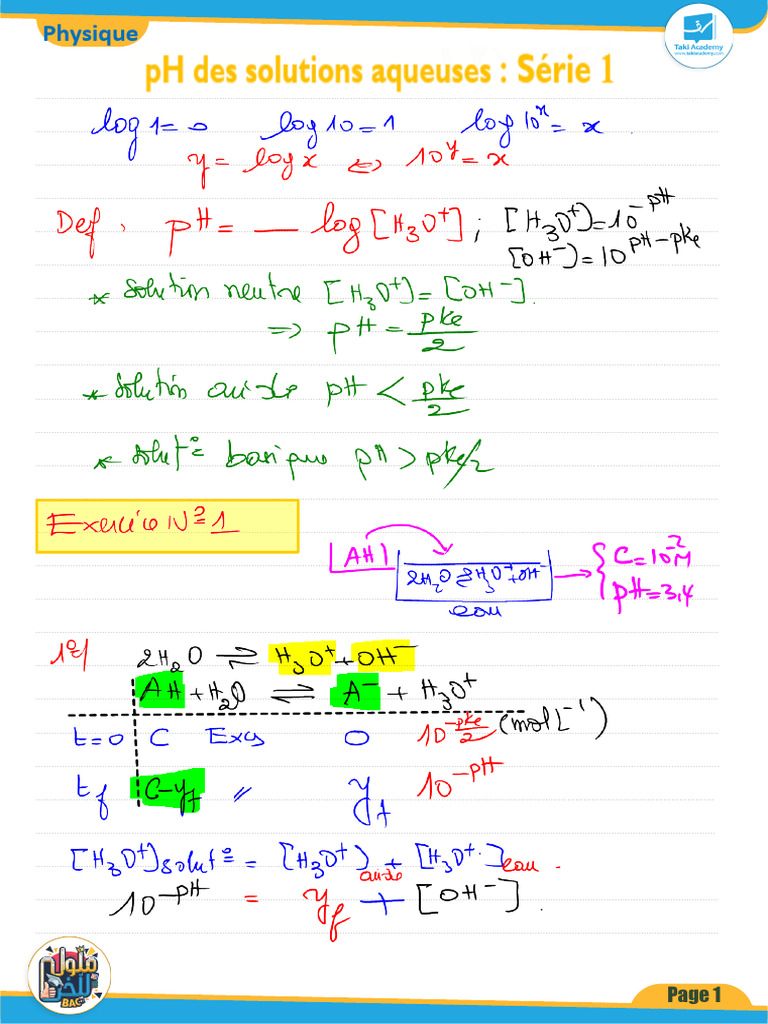 Physique
Taki Academy
www.takiacademy.com
pH des solutions aqueuses : Série 1
log 1 = 0 log 10 = 1 log 10^x = x .
y = log x ⇔ 10^y = x
Def . pH = - log [H3O+] ; [H3O+) = 10^-pH
[OH-) = 10^pH-pke
* Solution neutre [H3O+) = [OH-].
=> pH = pke/2
* Solution acide pH < pke/2
* Solut° basique pH > pke/2
Exercice N° 1
[AH]
2H2O ⇌ H3O+ + OH-
eau
C = 10^-2 M
pH = 3,4
1°/ 2H2O ⇌ H3O+ + OH-
AH + H2O ⇌ A- + H3O+
t=0 C Excs 0 10^-pke/2 (mol L^-1)
tf C-yf // yf 10^-pH
[H3O+)solut° = [H3O+)acide + [H3O+]eau .
10^-pH = yf + [OH-] .
ملول
للخر
BAC
Page 1